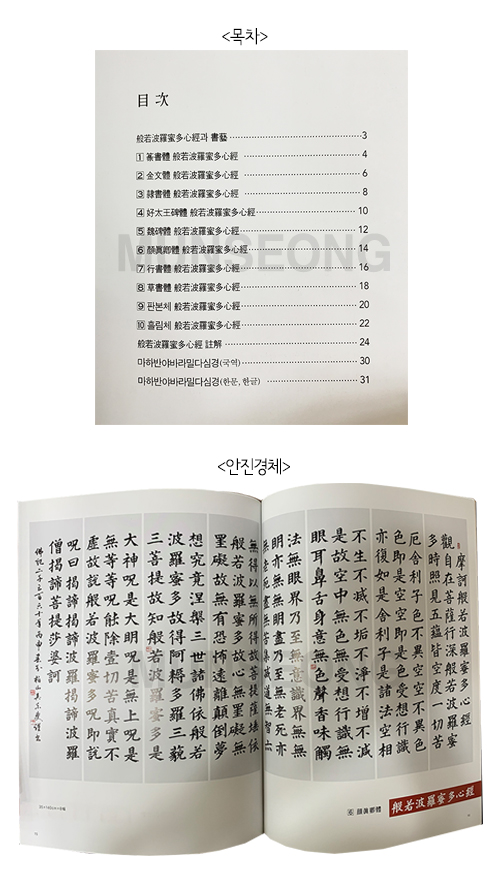 <목차>
目 次
般若波羅蜜多心經과 書藝 3
1 篆書體 般若波羅蜜多心經 4
2 金文體 般若波羅蜜多心經 6
3 隷書體 般若波羅蜜多心經 8
4 好太王碑體 般若波羅蜜多心經 10
5 魏碑體 般若波羅蜜多心經 12
6 顔眞卿體 般若波羅蜜多心經 14
7 行書體 般若波羅蜜多心經 16
8 草書體 般若波羅蜜多心經 18
9 판본체 般若波羅蜜多心經 20
10 흘림체 般若波羅蜜多心經 22
般若波羅蜜多心經 註解 24
마하반야바라밀다심경(국역) 30
마하반야바라밀다심경(한문, 한글) 31
<안진경체>
摩訶般若波羅蜜多心經
觀自在菩薩行深般若波羅蜜
多時照見五蘊皆空度一切苦
厄舍利子色不異空空不異色
色即是空空即是色受想行識
亦復如是舍利子是諸法空相
不生不滅不垢不淨不增不減
是故空中無色無受想行識無
眼耳鼻舌身意無色聲香味觸
法無眼界乃至無意識界無無
明亦無無明盡乃至無老死亦
無老死盡無苦集滅道無智亦
無得以無所得故菩提薩埵依
般若波羅蜜多故心無罣礙無
罣礙故無有恐怖遠離顛倒夢
想究竟涅槃三世諸佛依般若
波羅蜜多故得阿耨多羅三藐
三菩提故知般若波羅蜜多是
大神呪是大明呪是無上呪是
無等等呪能除一切苦真實不
虛故說般若波羅蜜多呪即說
呪曰揭諦揭諦波羅揭諦波羅
僧揭諦菩提莎婆訶
6 顔眞卿體
般若波羅蜜多心經